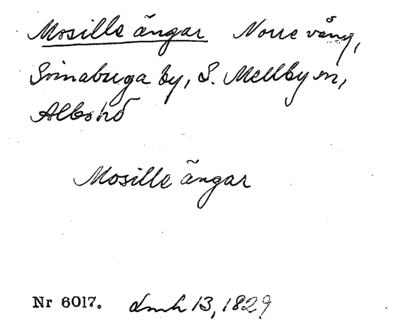 Mosille ängar Norre vång,
Svinaberga by, S. Mellby sn,
Albo hd
Mosille ängar
Nr 6017. lmh 13, 1829